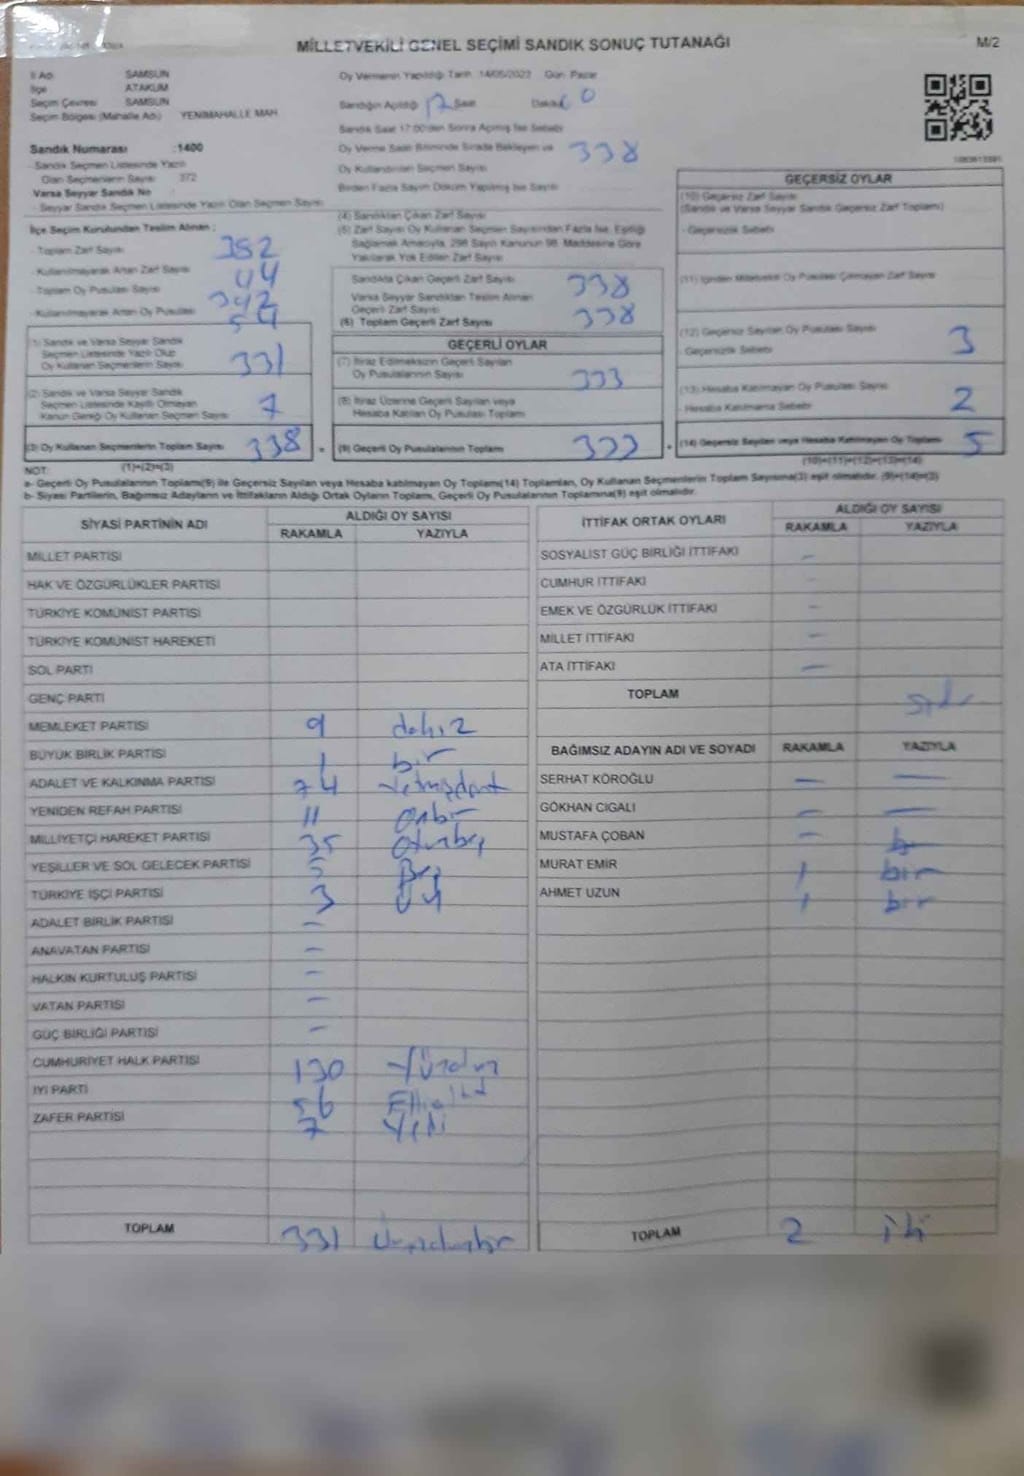 MİLLETVEKİLİ GENEL SEÇİMİ SANDIK SONUÇ TUTANAĞI
M/2
İl Adı SAMSUN
İlçe ATAKUM
Seçim Çevresi SAMSUN
Seçim Bölgesi (Mahalle Adı) YENİMAHALLE MAH
Sandık Numarası :1400
- Sandık Seçmen Listesinde Yazılı
Olan Seçmenlerin Sayısı 372
Varsa Seyyar Sandık No :
- Seyyar Sandık Seçmen Listesinde Yazılı Olan Seçmen Sayısı
Oy Vermenin Yapıldığı Tarih :14/05/2023 Gün: Pazar
Sandığın Açıldığı 17 Saat Dakika 0
Sandık Saat 17:00'den Sonra Açılmış İse Sebebi
Oy Verme Saati Bitiminde Sırada Bekleyen ve
Oy Kullandırılan Seçmen Sayısı 338
Birden Fazla Sayım Döküm Yapılmış İse Sayısı
İlçe Seçim Kurulundan Teslim Alınan ;
- Toplam Zarf Sayısı 382
- Kullanılmayarak Artan Zarf Sayısı 44
- Toplam Oy Pusulası Sayısı 392
- Kullanılmayarak Artan Oy Pusulası 54
(1) Sandık ve Varsa Seyyar Sandık
Seçmen Listesinde Yazılı Olup
Oy Kullanan Seçmenlerin Sayısı 331
(2) Sandık ve Varsa Seyyar Sandık
Seçmen Listesinde Kayıtlı Olmayan
Kanun Gereği Oy Kullanan Seçmen Sayısı 7
(3) Oy Kullanan Seçmenlerin Toplam Sayısı 338
(1)+(2)=(3)
(4) Sandıktan Çıkan Zarf Sayısı
(5) Zarf Sayısı Oy Kullanan Seçmen Sayısından Fazla İse, Eşitliği
Sağlamak Amacıyla, 298 Sayılı Kanunun 98. Maddesine Göre
Yakılarak Yok Edilen Zarf Sayısı
Sandıkta Çıkan Geçerli Zarf Sayısı 338
Varsa Seyyar Sandıktan Teslim Alınan
Geçerli Zarf Sayısı
(6) Toplam Geçerli Zarf Sayısı 338
GEÇERLİ OYLAR
(7) İtiraz Edilmeksizin Geçerli Sayılan
Oy Pusulalarının Sayısı 333
(8) İtiraz Üzerine Geçerli Sayılan veya
Hesaba Katılan Oy Pusulası Toplamı
(9) Geçerli Oy Pusulalarının Toplamı 333
GEÇERSİZ OYLAR
(10) Geçersiz Zarf Sayısı
(Sandık ve Varsa Seyyar Sandık Geçersiz Zarf Toplamı)
- Geçersizlik Sebebi
(11) İçinden Milletvekili Oy Pusulası Çıkmayan Zarf Sayısı
(12) Geçersiz Sayılan Oy Pusulası Sayısı 3
- Geçersizlik Sebebi
(13) Hesaba Katılmayan Oy Pusulası Sayısı
- Hesaba Katılmama Sebebi 2
(14) Geçersiz Sayılan veya Hesaba Katılmayan Oy Toplamı 5
(10)+(11)+(12)+(13)=(14)
NOT:
a- Geçerli Oy Pusulalarının Toplamı(9) ile Geçersiz Sayılan veya Hesaba katılmayan Oy Toplamı(14) Toplamları, Oy Kullanan Seçmenlerin Toplam Sayısına(3) eşit olmalıdır. (9)+(14)=(3)
b- Siyasi Partilerin, Bağımsız Adayların ve İttifakların Aldığı Ortak Oyların Toplamı, Geçerli Oy Pusulalarının Toplamına(9) eşit olmalıdır.
SİYASİ PARTİNİN ADI
ALDIĞI OY SAYISI
RAKAMLA YAZIYLA
MİLLET PARTİSİ
HAK VE ÖZGÜRLÜKLER PARTİSİ
TÜRKİYE KOMÜNİST PARTİSİ
TÜRKİYE KOMÜNİST HAREKETİ
SOL PARTİ
GENÇ PARTİ
MEMLEKET PARTİSİ 9 dokuz
BÜYÜK BİRLİK PARTİSİ 1 bir
ADALET VE KALKINMA PARTİSİ 74 Yetmişdört
YENİDEN REFAH PARTİSİ 11 Onbir
MİLLİYETÇİ HAREKET PARTİSİ 35 Otuzbeş
YEŞİLLER VE SOL GELECEK PARTİSİ 5 Beş
TÜRKİYE İŞÇİ PARTİSİ 3 Üç
ADALET BİRLİK PARTİSİ -
ANAVATAN PARTİSİ -
HALKIN KURTULUŞ PARTİSİ -
VATAN PARTİSİ -
GÜÇ BİRLİĞİ PARTİSİ -
CUMHURİYET HALK PARTİSİ 130 Yüzotuz
İYİ PARTİ 56 Ellialtı
ZAFER PARTİSİ 7 Yedi
TOPLAM 331 Üçyüzotuzbir
İTTİFAK ORTAK OYLARI
ALDIĞI OY SAYISI
RAKAMLA YAZIYLA
SOSYALİST GÜÇ BİRLİĞİ İTTİFAKI -
CUMHUR İTTİFAKI -
EMEK VE ÖZGÜRLÜK İTTİFAKI -
MİLLET İTTİFAKI -
ATA İTTİFAKI -
TOPLAM sıfır
BAĞIMSIZ ADAYIN ADI VE SOYADI RAKAMLA YAZIYLA
SERHAT KÖROĞLU - -
GÖKHAN CIGALI - -
MUSTAFA ÇOBAN -
MURAT EMİR 1 bir
AHMET UZUN 1 bir
TOPLAM 2 iki